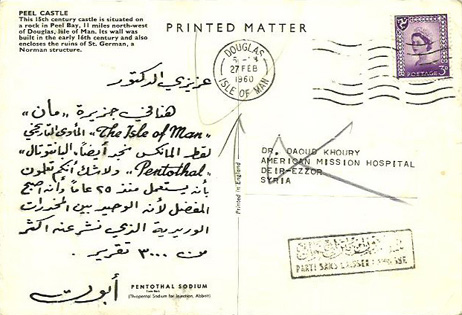 PEEL CASTLE
This 15th century castle is situated on
a rock in Peel Bay, 11 miles north-west
of Douglas, Isle of Man. Its wall was
built in the early 16th century and also
encloses the ruins of St. German, a
Norman structure.
PRINTED MATTER
DOUGLAS
27 FEB
1960
ISLE OF MAN
POSTAGE
3D
عزيزي الدكتور
هنا في جزيرة «مان»
"The Isle of Man" المأوى التاريخي
لقط المانكس نجد أيضاً «البانتوتال»
"Pentothal" ولا شك أنكم تعلمون
بأنه يستعمل منذ ٢٥ عاماً وأنه أصبح
المفضل لأنه الوحيد بين المخدرات
الوريدية الذي نشر عنه أكثر
من ٣٠٠٠ تقرير.
أبوت
DR. DAOUD KHOURY
AMERICAN MISSION HOSPITAL
DEIR-EZZOR
SYRIA
Printed in England
PARTI SANS LAISSER
PENTOTHAL SODIUM
(Thiopental Sodium for Injection, Abbott)